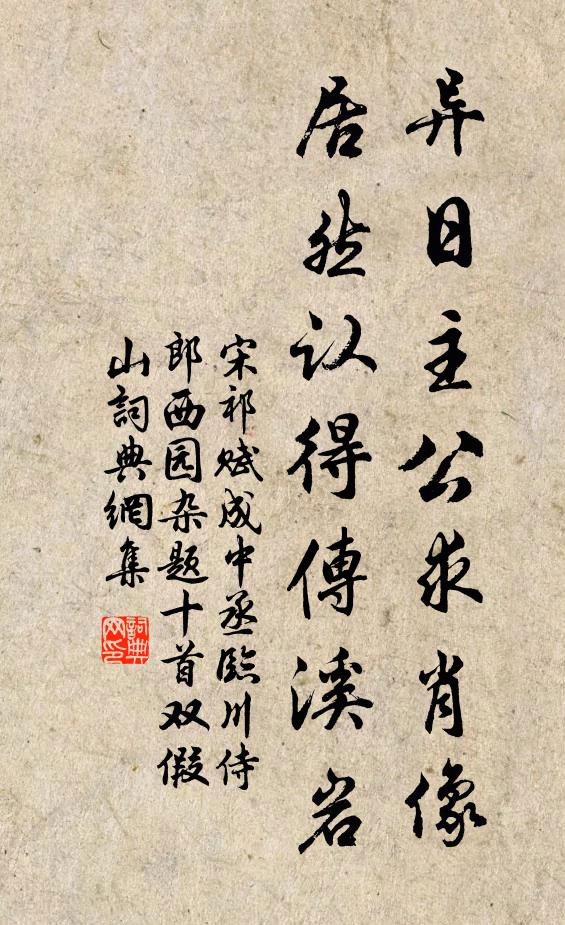 异日主公求肖像
居然认得傅溪岩
宋祁赋成中丞临川侍
郎西园杂题十首双假
山詞典網集
詞典
网印